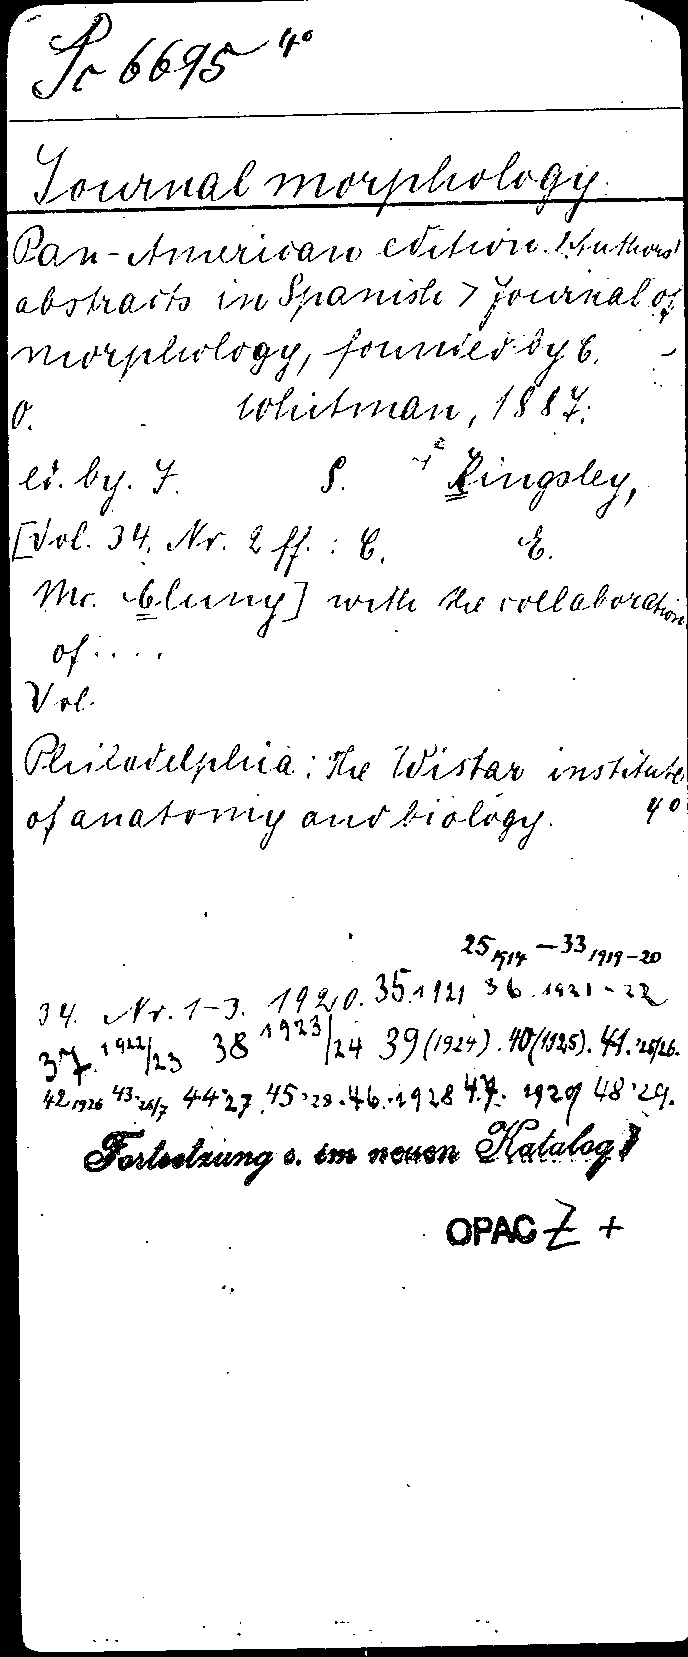 Sc 6695 4°
Journal morphology.
Pan-American edition. <Authors'
abstracts in Spanish> Journal of
morphology, founded by C.
O. Whitman, 1887.
ed. by. J. S. Kingsley,
[Vol. 34. Nr. 2 ff. : C. E.
Mc. Clung] with the collaboration
of....
Vol.
Philadelphia: The Wistar institute
of anatomy and biology. 4°
25 1914 - 33 1919-20
34. Nr. 1-3. 1920. 35.1921 36. 1921-22
37. 1922/23 38 1923/24 39 (1924). 40 (1925). 41.'25/26.
42 1926 43.'26/7 44'27 45'28. 46. 1928 47. 1929 48'29.
Fortsetzung s. im neuen Katalog
OPAC Z +